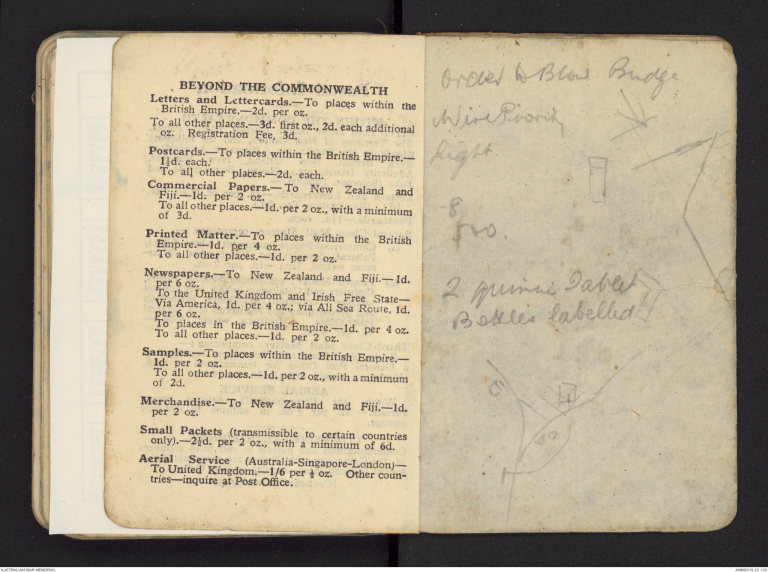 BEYOND THE COMMONWEALTH
Letters and Lettercards.—To places within the
British Empire.—2d. per oz.
To all other places.—3d. first oz., 2d. each additional
oz. Registration Fee, 3d.
Postcards.—To places within the British Empire.—
1½d. each.
To all other places.—2d. each.
Commercial Papers.—To New Zealand and
Fiji.—1d. per 2 oz.
To all other places.—1d. per 2 oz., with a minimum
of 3d.
Printed Matter.—To places within the British
Empire.—1d. per 4 oz.
To all other places.—1d. per 2 oz.
Newspapers.—To New Zealand and Fiji.—1d.
per 6 oz.
To the United Kingdom and Irish Free State—
Via America, 1d. per 4 oz.; via All Sea Route, 1d.
per 6 oz.
To places in the British Empire.—1d. per 4 oz.
To all other places.—1d. per 2 oz.
Samples.—To places within the British Empire.—
1d. per 2 oz.
To all other places.—1d. per 2 oz., with a minimum
of 2d.
Merchandise.—To New Zealand and Fiji.—1d.
per 2 oz.
Small Packets (transmissible to certain countries
only).—2½d. per 2 oz., with a minimum of 6d.
Aerial Service (Australia-Singapore-London)—
To United Kingdom.—1/6 per ½ oz. Other coun-
tries—inquire at Post Office.
Order to Blow Bridge
Wire Priority
Light
8
500
2 quinine Tablet
Bottles labelled
AUSTRALIAN WAR MEMORIAL